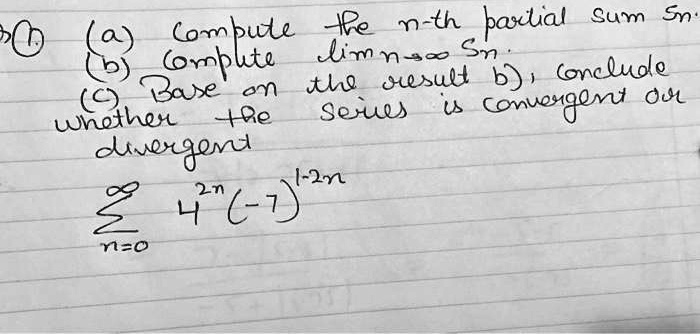 (1). (a) Compute the n-th partial sum Sn.
(b) Compute lim n→∞ Sn.
(c) Base on the result b), conclude
whether the series is convergent or
divergent
∞
Σ 4^{2n} (-7)^{1-2n}
n=0